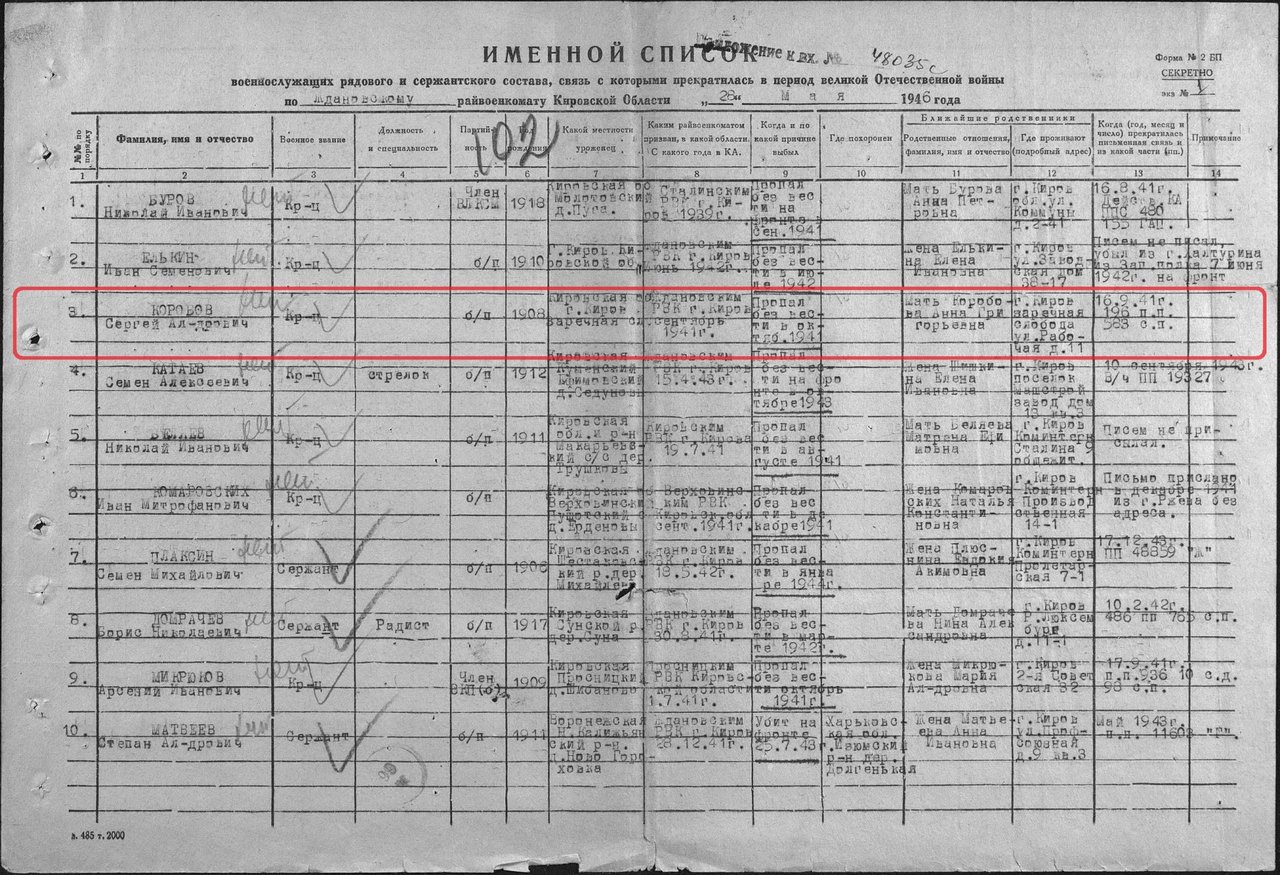 ИМЕННОЙ СПИСОК
Приложение к вх. № 48035с
Форма № 2 БП
СЕКРЕТНО
экз № 1
военнослужащих рядового и сержантского состава, связь с которыми прекратилась в период великой Отечественной войны
по Ждановскому райвоенкомату Кировской Области „28“ Мая 1946 года
102
№№ по порядку
Фамилия, имя и отчество
Военное звание
Должность и специальность
Партийность
Год рождения
Какой местности уроженец
Каким райвоенкоматом призван, в какой области. С какого года в КА.
Когда и по какой причине выбыл
Где похоронен
Ближайшие родственники
Родственные отношения, фамилия, имя и отчество
Где проживают (подробный адрес)
Когда (год, месяц и число) прекратилась письменная связь и из какой части (пп.)
Примечание
1 2 3 4 5 6 7 8 9 10 11 12 13 14
1. БУРОВ Николай Иванович Кр-ц Член ВЛКСМ 1918 Кировская об Молотовский д.Пуга. Сталинским РВК г.Киров 1939г. Пропал без вести на фронте в сен.1941 Мать Бурова Анна Петровна г.Киров обл.ул. Коммуны д.2-41 16.8.41г. Действ.КА ППС 480 155 ГАП.
2. ЕЛЬКИН Иван Семенович Кр-ц б/п 1910 Г.Киров Кировской об Ждановским РВК г.Киров июнь 1942г. Пропал без вести в июле 1942 Жена Елькина Елена Ивановна г.Киров ул.Заводская дом 38-17 Писем не писал, убыл из г.Халтурина из Зап.полка 7 июня 1942г. на фронт
3. КОРОБОВ Сергей Ал-дрович Кр-ц б/п 1908 Кировская об г.Киров заречная сл. Ждановским РВК г.Киров сентябрь 1941г. Пропал без вести в октяб.1941 Мать Коробова Анна Григорьевна г.Киров заречная слобода ул.Рабочая д.11 16.9.41г. 196 п.п. 583 с.п.
4. КАТАЕВ Семен Алексеевич Кр-ц стрелок б/п 1912 Кировская Куменский Ефимовский д.Седуновы Ждановским РВК г.Киров 15.4.43г. Пропал без вести на фронте в октябре 1943 Жена Шишкина Елена Ивановна г.Киров поселок Машстрой завод дом 13 кв.3 10 сентября 1943г. В/ч ПП 19327
5. БЕЛЯЕВ Николай Иванович Кр-ц б/п 1911 Кировская обл.и р-н Макарьевский с/с дер. Трушковы Кировским РВК г.Кирова 19.7.41 Пропал без вести в августе 1941 Мать Беляева Матрена Ефимовна г.Киров Коминтерн Сталина 9 общежит. Писем не присылал.
6. КОМАРОВСКИХ Иван Митрофанович Кр-ц б/п Кировская об Верховинский д.Ерденовы Верховинским РВК Кировск.обл сент.1941г. Пропал без вести в декабре 1941 Жена Комаровских Наталья Константиновна г.Киров Коминтерн Производственная 14-1 Письмо прислано в декабре 1941 из г.Ржева без адреса.
7. ПЛАКСИН Семен Михайлович Сержант б/п 1906 Кировская Шестаковский р.дер. Михайлев Ждановским РВК г.Киров 18.5.42г. Пропал без вести в январе 1944г. Жена Плюснина Евдокия Акимовна г.Киров Коминтерн Пролетарская 7-1 17.12.43г. ПП 48859 "Ж"
8. ДОМРАЧЕВ Борис Николаевич Сержант Радист б/п 1917 Кировская Сунской р. дер.Суна Ждановским РВК г.Киров 30.8.41г. Пропал без вести в марте 1942г. Мать Домрачева Нина Александровна г.Киров Р.Люксембург д.11-1 10.2.42г. 486 пп 765 с.п.
9. МИКРЮКОВ Арсений Иванович Кр-ц Член ВКП(б) 1909 Кировская Просницкий д.Шибаново Просницким РВК Кировской области 1.7.41г. Пропал без вести октябрь 1941г. Жена Микрюкова Мария Ал-дровна г.Киров 2-я Советская 82 17.9.41г. п.п.936 10 с.д. 98 с.п.
10. МАТВЕЕВ Степан Ал-дрович Сержант б/п 1911 Воронежская Н.Калижьянский р-н д.Ново Гороховка Ждановским РВК г.Киров 28.12.41г. Убит на фронте 25.7.43г. Харьковская обл. г.Изюмский р-н дер. Долгенькая Жена Матвеева Анна Ивановна г.Киров ул.Профсоюзная д.9 кв.3 Май 1943г. п.п. 11603 "Г".
з. 485 т. 2000